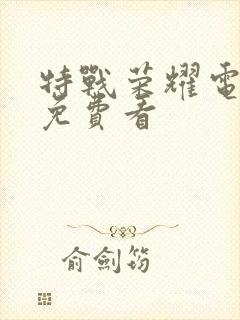 特戰荣耀電
免費看
俞劍筠